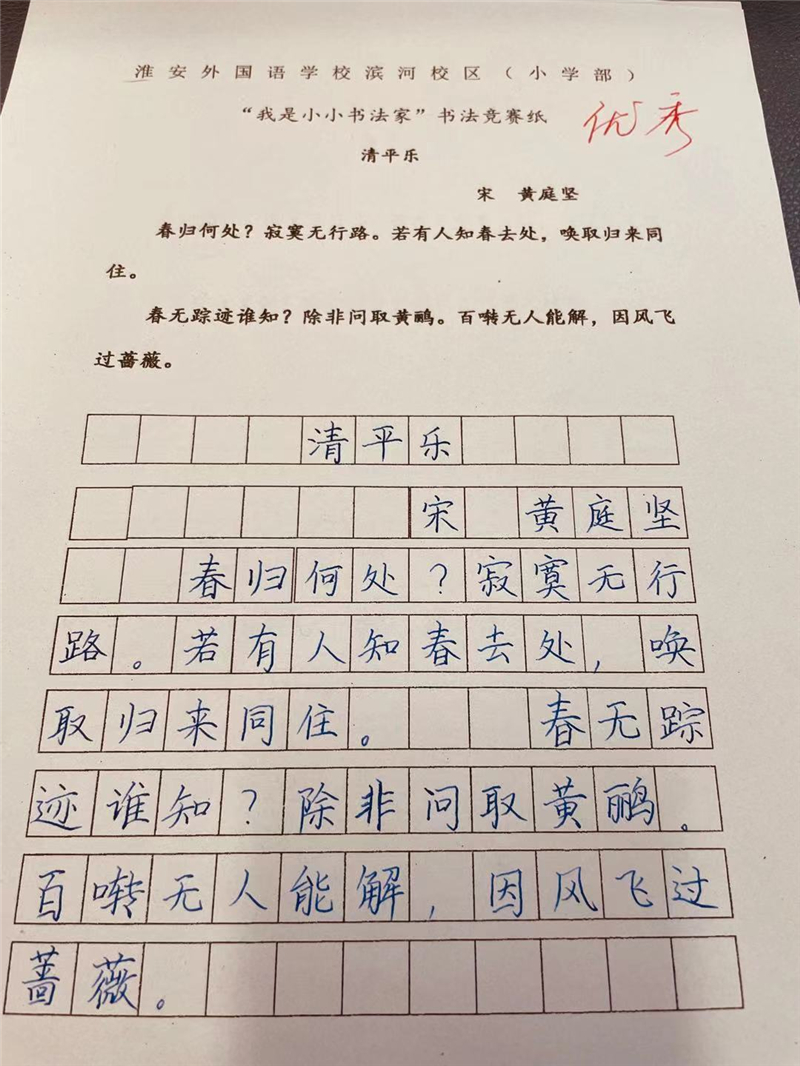 淮安外国语学校滨河校区（小学部）
“我是小小书法家”书法竞赛纸
优秀
清平乐
宋 黄庭坚
春归何处？寂寞无行路。若有人知春去处，唤取归来同
住。
春无踪迹谁知？除非问取黄鹂。百啭无人能解，因风飞
过蔷薇。
清平乐
宋 黄庭坚
春归何处？寂寞无行
路。若有人知春去处，唤
取归来同住。 春无踪
迹谁知？除非问取黄鹂。
百啭无人能解，因风飞过
蔷薇。